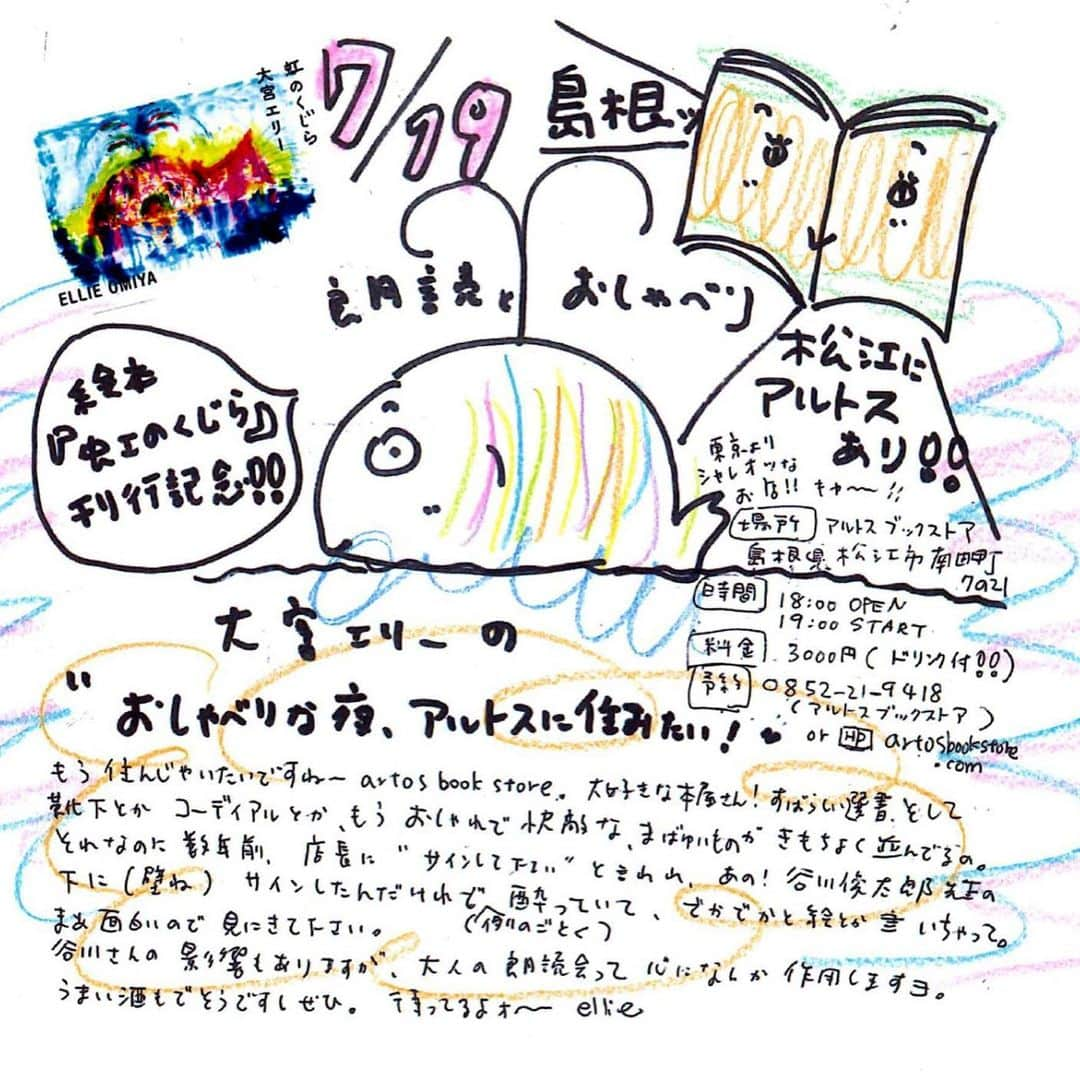 虹のくじら
大宮エリー
ELLIE OMIYA
7/19
島根ッ
朗読と
おしゃべり
絵本
『虹のくじら』
刊行記念!!
松江に
アルトス
あり!!
東京より
シャレオツな
お店!! キャ〜!!
場所 アルトスブックストア
島根県松江市南田町
7021
時間 18:00 OPEN
19:00 START
料金 3000円(ドリンク付!!)
予約 0852-21-9418
(アルトスブックストア)
or HP artosbookstore
.com
大宮エリーの
"おしゃべりな夜、アルトスに住みたい!"
もう住んじゃいたいですね〜 artos book store。大好きな本屋さん!すばらしい選書、そして
靴下とか コーディアルとか、もう おしゃれで快適な、まばゆいものが きもちよく並んでるの。
それなのに 数年前、店長に "サインして下さい" と言われ、あの!谷川俊太郎先生の
下に(壁ね) サインしたんだけれど、酔っていて、でかでかと絵とか書いちゃって。
(例のごとく)
まあ面白いので 見にきて下さい。
谷川さんの 影響もありますが、大人の朗読会って 心になんか 作用しますヨ。
うまい酒もでそうですしぜひ。 待ってるよォ〜 ellie